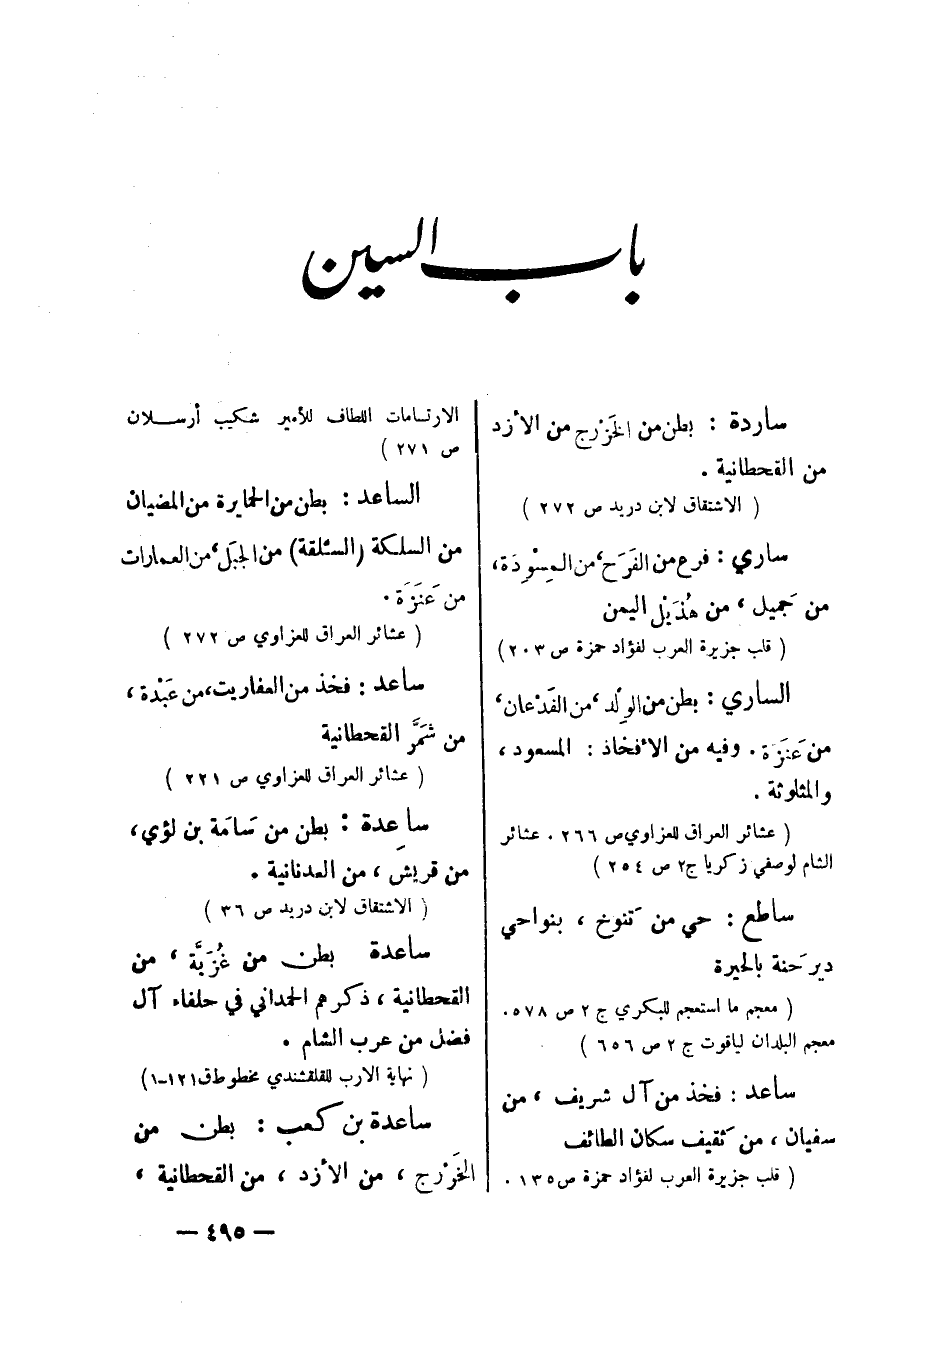 باب السين
ساردة : بطن من الخَزْرج من الأزد
من القحطانية .
( الاشتقاق لابن دريد ص ٢٧٢ )
ساري : فرع من الفَرَح، من المِسْوِدَة،
من جَميل ، من هُذَيْل اليمن
( قلب جزيرة العرب لفؤاد حمزة ص ٢٠٣)
الساري : بطن من الوِلْد ، من الفَدْعان،
من عَنَزَة . وفيه من الأفخاذ : المسعود ،
والمثلوثة .
( عشائر العراق للعزاوي ص ٢٦٦ . عشائر
الشام لوصفي زكريا ج٢ ص ٢٥٤ )
ساطع : حي من تَنوخ ، بنواحي
دير حَنة بالحيرة
( معجم ما استعجم للبكري ج ٢ ص ٥٧٨ .
معجم البلدان لياقوت ج ٢ ص ٦٥٦ )
ساعد : فخذ من آل شريف ، من
سفيان ، من ثَقيف سكان الطائف
( قلب جزيرة العرب لفؤاد حمزة ص ١٣٥ .
الارتسامات اللطاف للأمير شكيب أرسلان
ص ٢٧١ )
الساعد : بطن من الحمايرة من المضيان
من السلكة (السئلقة) من الجبَل، من العمارات
من عَنَزَة .
( عشائر العراق للعزاوي ص ٢٧٢ )
ساعد : فخذ من العفاريت، من عَبْدة ،
من شَمَّر القحطانية
( عشائر العراق للعزاوي ص ٢٢١ )
ساعِدة : بطن من سَامَة بن لؤي،
من قريش ، من العدنانية .
( الاشتقاق لابن دريد ص ٣٦ )
ساعدة بطن من غُزَيَّة ، من
القحطانية ، ذكرهم الحمداني في حلفاء آل
فضل من عرب الشام .
( نهاية الارب للقلقشندي مخطوط ق ١٢١-١)
ساعدة بن كعب : بطن من
الخَزْرج ، من الأزد ، من القحطانية ،
— ٤٩٥ —